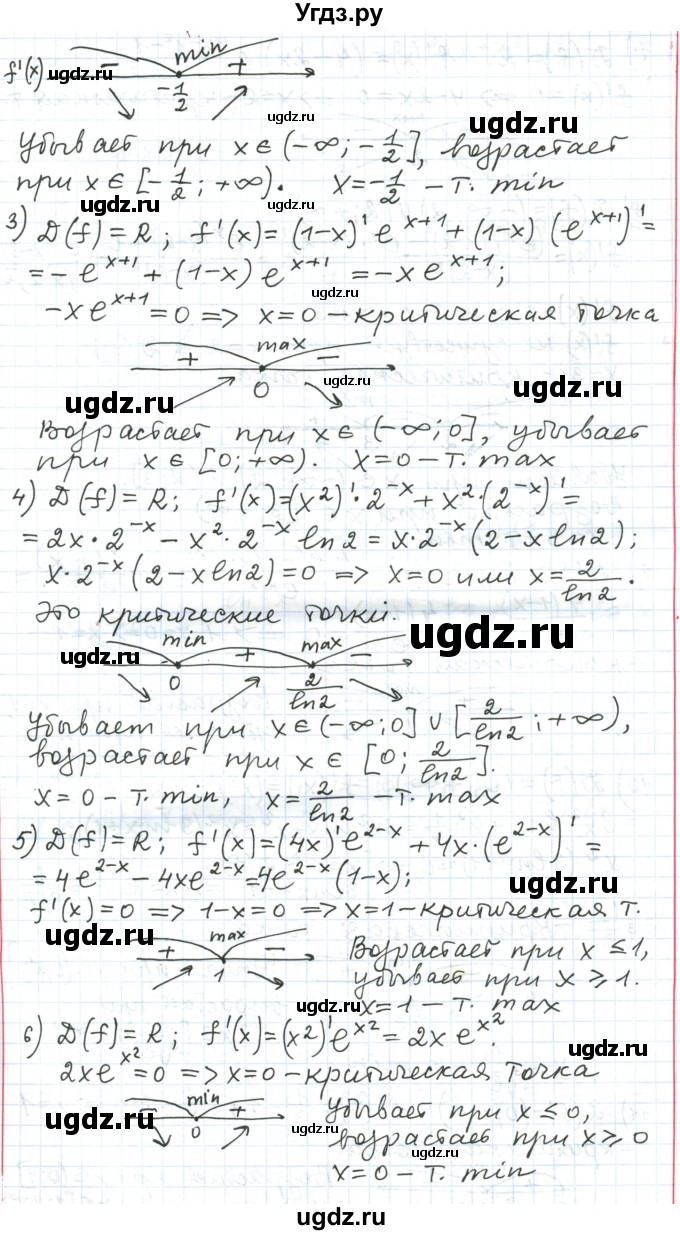 Угдз.ру
f'(x) − min +
ugdz.ru
-1/2
ugdz.ru
Убывает при x ∈ (-∞; -1/2], возрастает
ugdz.ru
при x ∈ [-1/2; +∞). x = -1/2 – т. min
ugdz.ru
3) D(f) = R; f'(x) = (1-x)' e^(x+1) + (1-x) (e^(x+1))' =
ugdz.ru
= -e^(x+1) + (1-x) e^(x+1) = -x e^(x+1);
ugdz.ru
-x e^(x+1) = 0 => x = 0 – критическая точка
+ max −
ugdz.ru
ugdz.ru
0
ugdz.ru
Возрастает при x ∈ (-∞; 0], убывает
при x ∈ [0; +∞). x = 0 – т. max
ugdz.ru
4) D(f) = R; f'(x) = (x²)' · 2^(-x) + x² · (2^(-x))' =
= 2x · 2^(-x) - x² · 2^(-x) ln2 = x · 2^(-x) (2 - x ln2);
x · 2^(-x) (2 - x ln2) = 0 => x = 0 или x = 2/ln2.
ugdz.ru
Это критические точки.
ugdz.ru
− min + max −
ugdz.ru
0 2/ln2
ugdz.ru
Убывает при x ∈ (-∞; 0] ∪ [2/ln2; +∞),
возрастает при x ∈ [0; 2/ln2].
ugdz.ru
ugdz.ru
x = 0 – т. min, x = 2/ln2 – т. max
ugdz.ru
5) D(f) = R; f'(x) = (4x)' e^(2-x) + 4x · (e^(2-x))' =
= 4e^(2-x) - 4x e^(2-x) = 4e^(2-x) (1-x);
ugdz.ru
f'(x) = 0 => 1-x = 0 => x = 1 – критическая т.
ugdz.ru
+ max − Возрастает при x ≤ 1,
1 убывает при x ≥ 1.
ugdz.ru
x = 1 – т. max
ugdz.ru
6) D(f) = R; f'(x) = (x²)' e^(x²) = 2x e^(x²).
ugdz.ru
2x e^(x²) = 0 => x = 0 – критическая точка
− min + Убывает при x ≤ 0,
ugdz.ru
0 возрастает при x ≥ 0
ugdz.ru
x = 0 – т. min
ugdz.ru
ugdz.ru